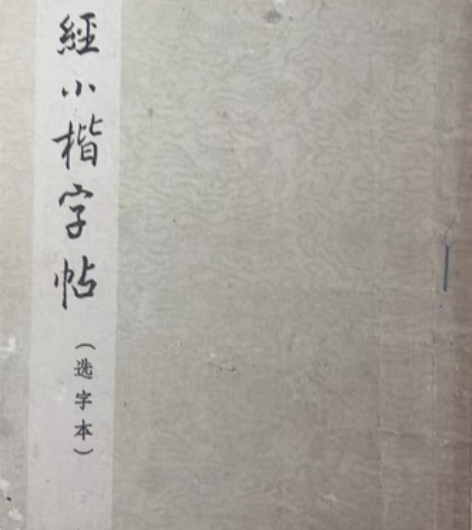 經小楷字帖
（选字本）